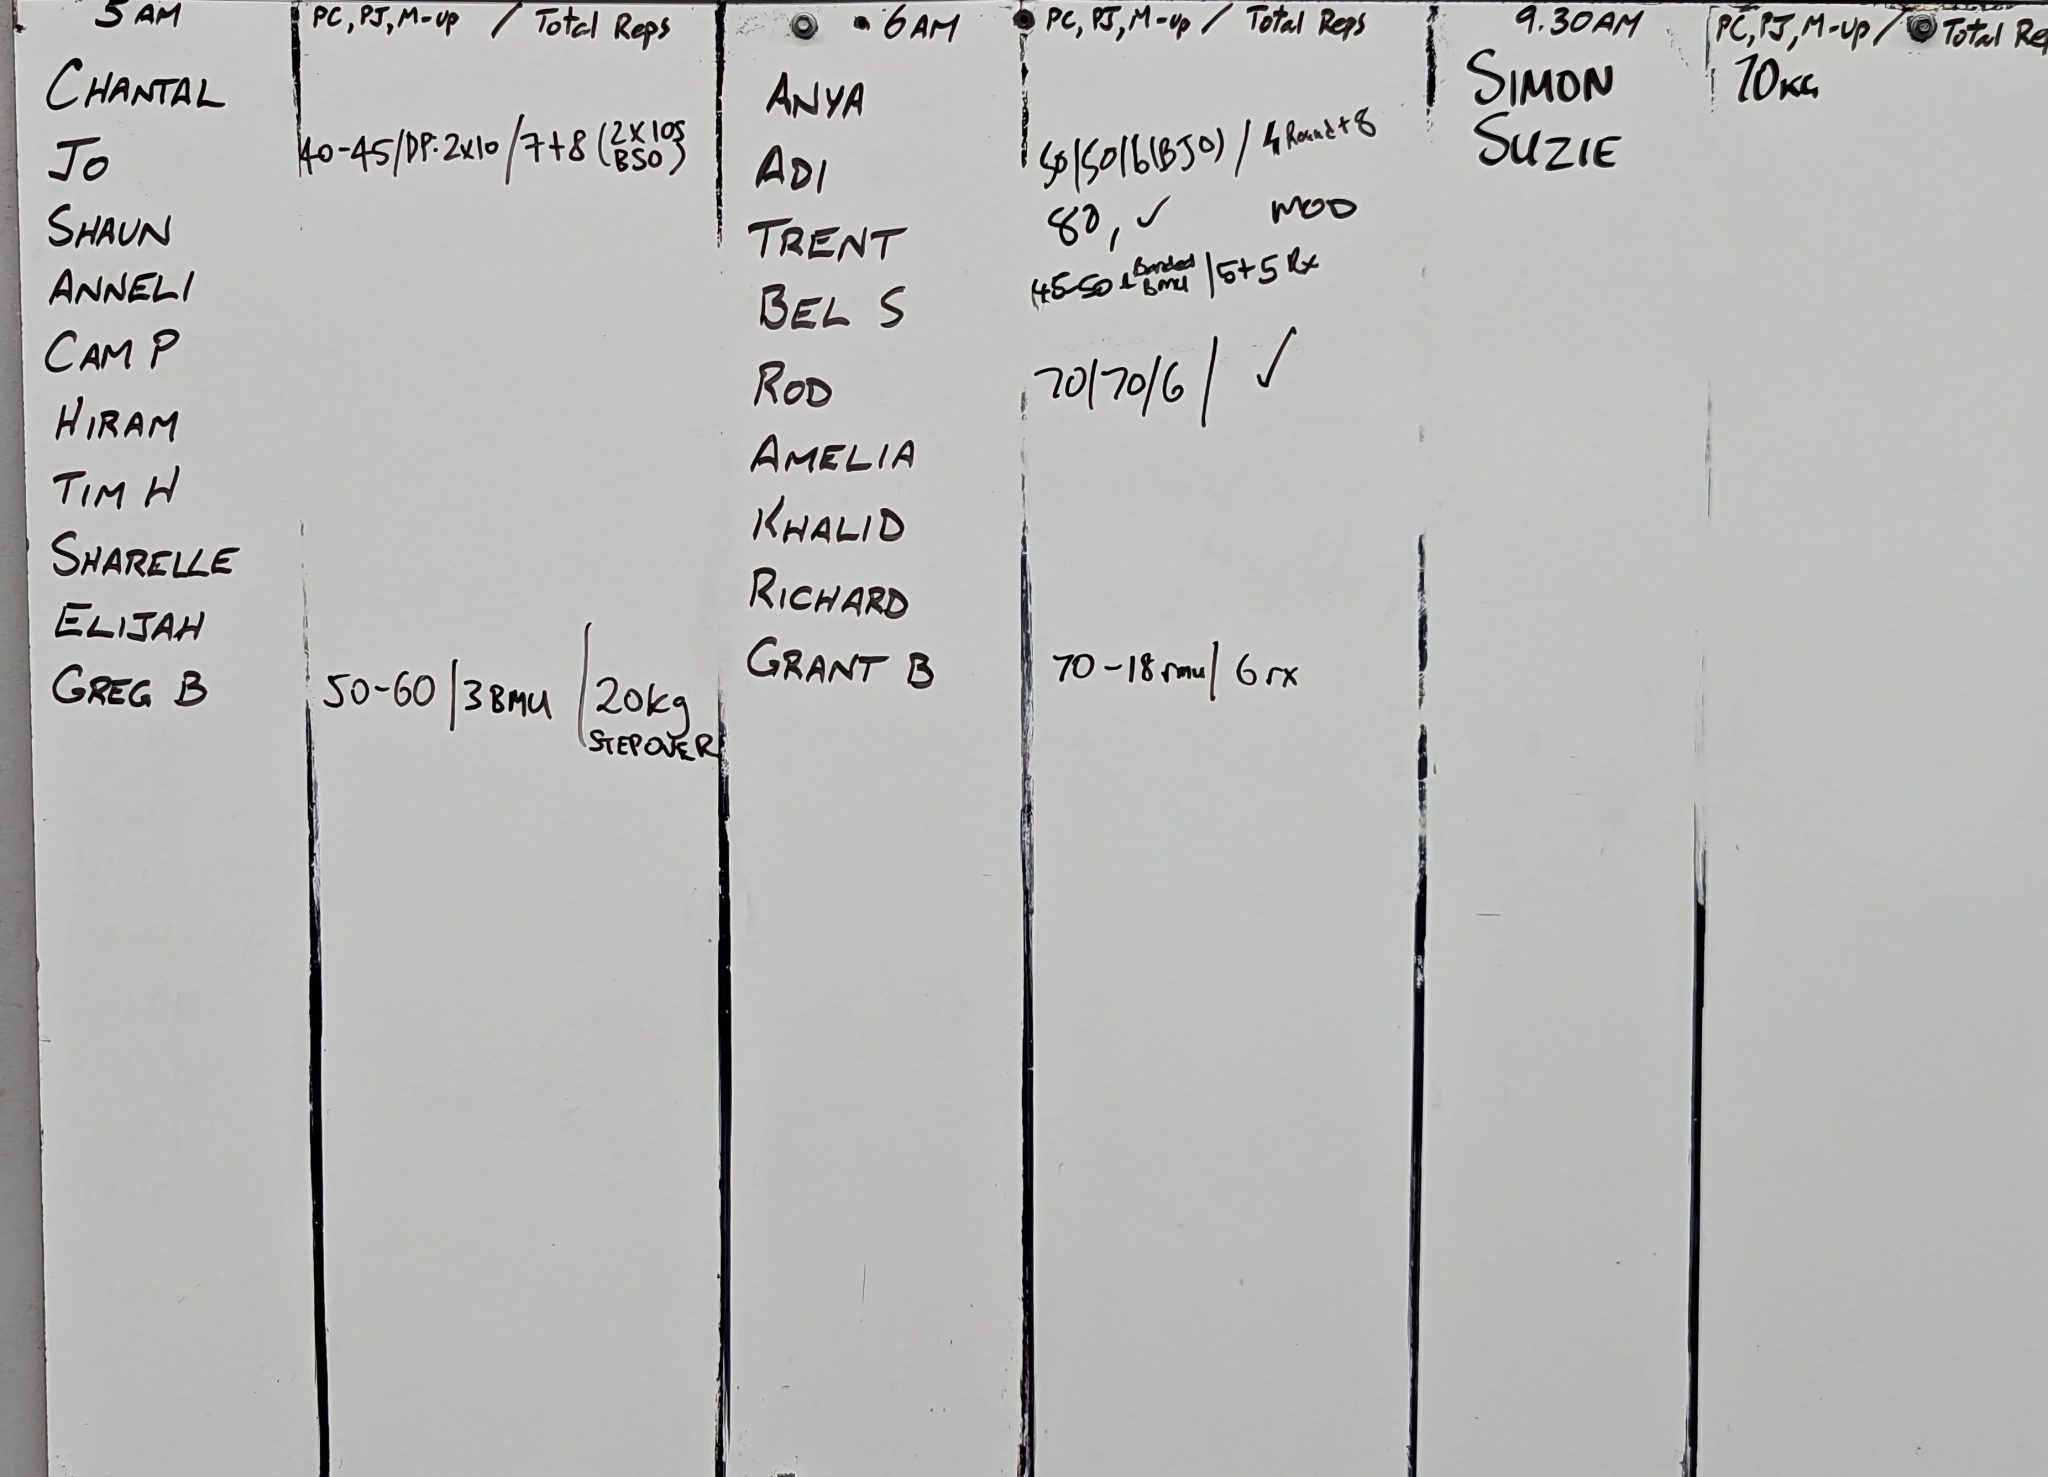 5 AM PC, PJ, M-up / Total Reps
CHANTAL
JO 40-45/DP: 2x10 / 7+8 (2x10s BSO)
SHAUN
ANNELI
CAM P
HIRAM
TIM H
SHARELLE
ELIJAH
GREG B 50-60 / 3 BMU / 20kg
STEPOVER
6 AM PC, PJ, M-up / Total Reps
ANYA
ADI 50/50/6(BJO) / 4 Round + 8
TRENT 80, ✓ MOD
BEL S 45-50 + Banded BMU / 5+5 Rx
ROD 70/70/6 / ✓
AMELIA
KHALID
RICHARD
GRANT B 70-18 rmu / 6 rx
9.30AM PC, PJ, M-up / Total Re
SIMON 70KG
SUZIE